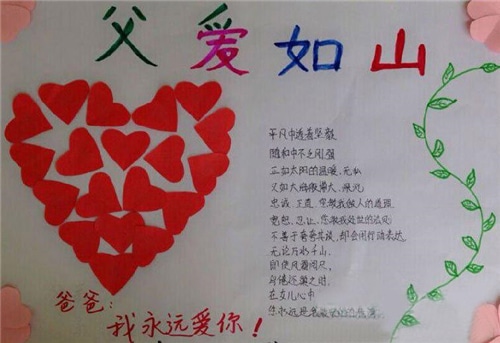 父爱如山
平凡中透着坚毅
随和中不乏刚强
正如太阳的温暖、无私
又如大海般博大、深沉
忠诚、正直、您教我做人的道理
宽恕、忍让、您教我处世的法则
不善于夸夸其谈、却会用行动表达
无论万水千山
即使风霜
在女儿心中
您永远是我
爸爸:
我永远爱你!